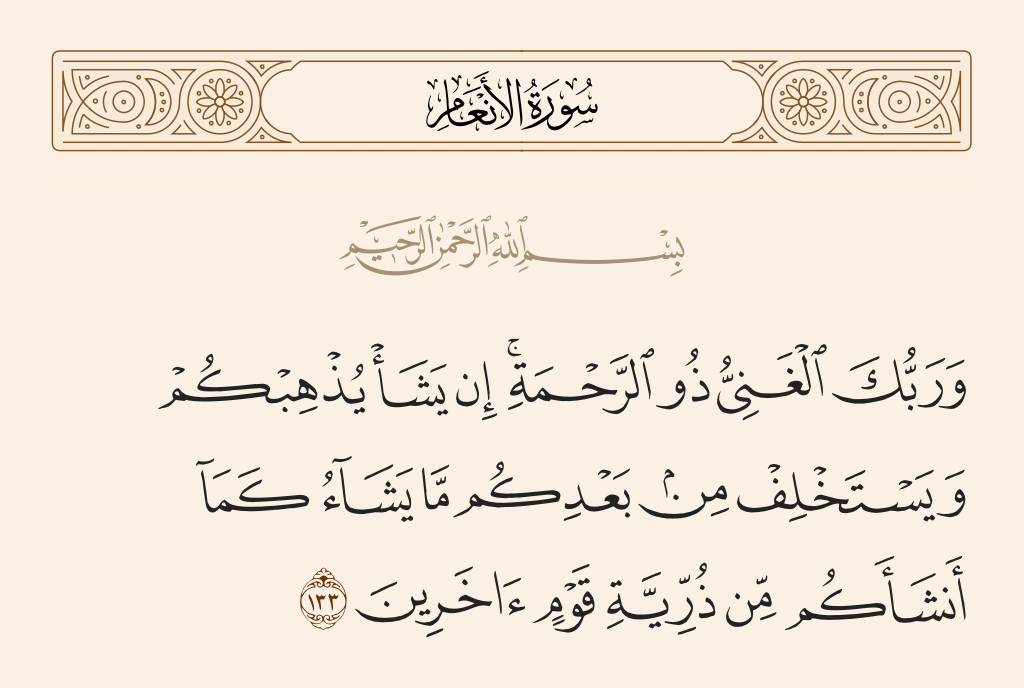 سُورَةُ الأَنْعَامِ
بِسْمِ ٱللَّهِ ٱلرَّحْمَٰنِ ٱلرَّحِيمِ
وَرَبُّكَ ٱلْغَنِىُّ ذُو ٱلرَّحْمَةِ ۚ إِن يَشَأْ يُذْهِبْكُمْ
وَيَسْتَخْلِفْ مِنۢ بَعْدِكُم مَّا يَشَآءُ كَمَآ
أَنشَأَكُم مِّن ذُرِّيَّةِ قَوْمٍ ءَاخَرِينَ ١٣٣